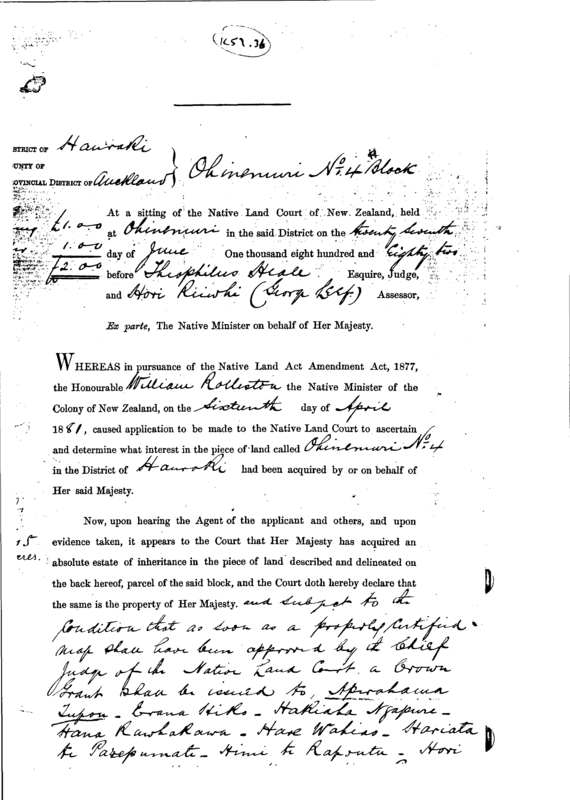 1257.36
STRICT OF Hauraki
UNTY OF
OVINCIAL DISTRICT OF Auckland } Ohinemuri No. 4 Block
At a sitting of the Native Land Court of New Zealand, held
£1.00 at Ohinemuri in the said District on the twenty seventh
1.00 day of June One thousand eight hundred and Eighty two
£2.00 before Theophilus Heale Esquire, Judge,
and Hori (George) Assessor,
Ex parte, The Native Minister on behalf of Her Majesty.
WHEREAS in pursuance of the Native Land Act Amendment Act, 1877,
the Honourable William Rolleston the Native Minister of the
Colony of New Zealand, on the Sixteenth day of April
1881, caused application to be made to the Native Land Court to ascertain
and determine what interest in the piece of land called Ohinemuri No. 4
in the District of Hauraki had been acquired by or on behalf of
Her said Majesty.
Now, upon hearing the Agent of the applicant and others, and upon
15 evidence taken, it appears to the Court that Her Majesty has acquired an
cres. absolute estate of inheritance in the piece of land described and delineated on
the back hereof, parcel of the said block, and the Court doth hereby declare that
the same is the property of Her Majesty. and subject to the
Condition that as soon as a properly Certified
map shall have been approved by the Chief
Judge of the Native Land Court a Crown
Grant shall be issued to, Apirahama
Tupou - Erana Hiko - Hakiaha Ngapure -
Hana Rawhakawa - Hare Wahiao - Hariata
te Parepumate - Himi te Rapouta - Hori